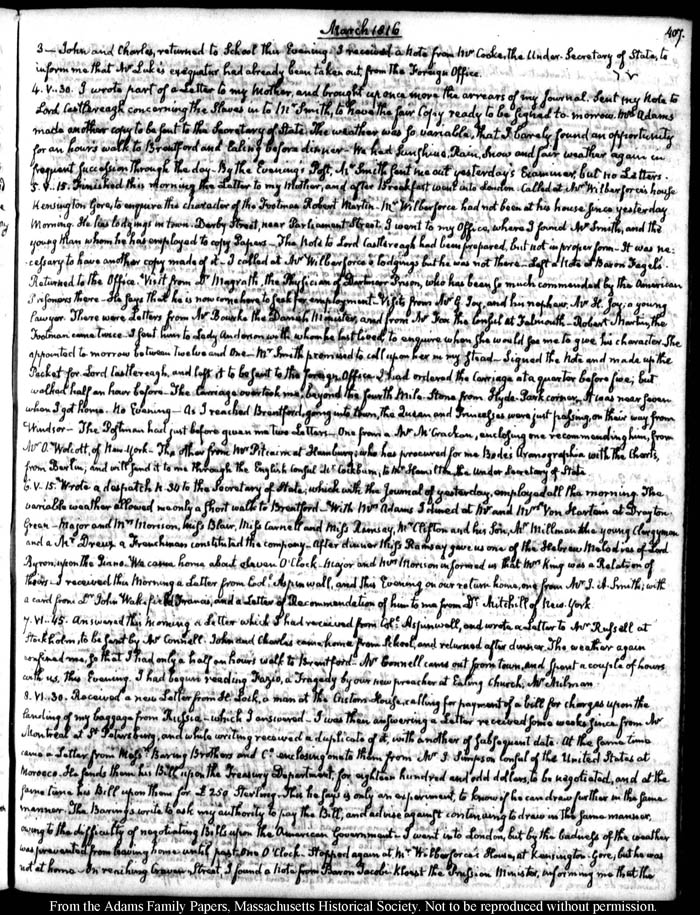 March 1816
407.
3— John and Charles, returned to School this Evening. I received a Note from Mr Cooke, the Under-Secretary of State, to
inform me that Mr Luke's exequatur had already been taken out, from the Foreign Office.
4. V. 30. I wrote part of a Letter to my Mother, and brought up once more the arrears of my Journal. Sent my Note to
Lord Castlereagh concerning the Slaves in to Mr Smith, to have the fair Copy ready to be signed to morrow. Mrs Adams
made another copy to be sent to the Secretary of State. The weather was so variable, that I barely found an opportunity
for an hours walk to Brentford and Ealing before dinner— We had Sunshine, Rain, Snow and fair weather again in
frequent succession through the day. By the Evening Post, Mr Smith sent me out yesterday's Examiner, but no Letters.
5. V. 15. Finished this morning the Letter to my Mother, and after Breakfast went into London. Called at Mr Wilberforce's house
Kensington Gore, to enquire the character of the Footman Robert Martin. Mr Wilberforce had not been at his house since yesterday
Morning. He has lodgings in town. Derby Street, near Parliament Street. I went to my Office, where I found Mr Smith, and the
young Man whom he has employed to copy Papers— The Note to Lord Castlereagh had been prepared, but not in proper form— It was ne-
cessary to have another copy made of it— I called at Mr Wilberforce's lodgings but he was not there— Left a Note at Baron Fagel's.
Returned to the Office. Visit from Dr Magrath, the Physician of Dartmoor Prison, who has been so much commended by the American
Prisoners there— He says that he is now come here to seek for employment— Visits from Mr G Joy, and his nephew, Mr H. Joy, a young
Lawyer. There were Letters from Mr Bourke the Danish Minister, and from Mr Fox the Consul at Falmouth— Robert Martin, the
Footman came twice. I sent him to Lady Anderson with whom he last lived to enquire when she would see me to give his character. She
appointed to morrow between twelve and One— Mr Smith promised to call upon her in my stead— Signed the Note and made up the
Packet for Lord Castlereagh, and left it to be sent to the Foreign Office. I had ordered the Carriage at a quarter before five; but
walked half an hour before— The Carriage overtook me, beyond the fourth Mile-Stone from Hyde-Park corner, It was near seven
when I got home. No Evening— As I reached Brentford, going into town, the Queen and Princesses were just passing, on their way from
Windsor— The Postman had just before given me two Letters— One from a Mr McCrackan, enclosing one recommending him, from
Mr O. Wolcott, of New-York— The other from Mr Pitcairn at Hamburg, who has procured for me Bode's Uranographia with the Charts,
from Berlin, and will send it to me through the English Consul Mr Cockburn, to Mr Hamilton, the under Secretary of State
6. V. 15. Wrote a despatch N. 34 to the Secretary of State, which with the Journal of yesterday, employed all the morning. The
variable weather allowed me only a short walk to Brentford— With Mrs Adams I dined at Mr and Mrs Von Hartem at Drayton
Green— Major and Mrs Morison, Miss Blair, Miss Carnell and Miss Ramsay, Mr Clifton and his Son, Mr Millman the young Clergyman
and a Mr Dreux a Frenchman constituted the company— After dinner Miss Ramsay gave us one of the Hebrew Melodies of Lord
Byron, upon the Piano. We came home about eleven O'Clock. Major and Mrs Morison informed us that Mrs King was a Relation of
theirs— I received this Morning a Letter from Col. Aspinwall, and this Evening on our return home, one from Mr J. A. Smith; with
a card from Dr John Wakefield Francis, and a Letter of Recommendation of him to me from Dr Mitchill of New York.
7. VI. 45. Answered this morning a Letter which I had received from Col. Aspinwall, and wrote a Letter to Mr Russell at
Stockholm, to be sent by Mr Connell. John and Charles came home from School, and returned after dinner. The weather again
confined me, so that I had only a half an hours walk to Brentford— Mr Connell came out from town, and spent a couple of hours
with us, this Evening. I had begun reading Fazio, a Tragedy by our new preacher at Ealing Church, Mr Milman.
8. VI. 30. Received a new Letter from H. Lock, a man at the Custom House, calling for payment of a bill for charges upon the
landing of my baggage from Russia— which I answered— I was then answering a Letter received some weeks since from Mr
Montreal at St Petersburg, and while writing received a duplicate of it, with another of subsequent date. At the same time
came a Letter from Messrs Baring Brothers and Co. enclosing one to them from Mr J. Simpson Consul of the United States at
Morocco. He sends them his Bill, upon the Treasury Department, for eighteen hundred and odd dollars, to be negotiated, and at the
same time his Bill upon them for £250 Sterling. This he says is only an experiment, to know if he can draw further in the same
manner. The Barings write to ask my authority to pay the Bill, and advise against continuing to draw in the same manner,
owing to the difficulty of negotiating Bills upon the American Government. I went into London, but by the badness of the weather
was prevented from leaving home until past One O'Clock— Stopped again at Mr Wilberforce's House, at Kensington-Gore, but he was
not at home. On reaching Craven-Street, I found a Note from Baron Jacobi Kloest the Prussian Minister, informing me that the
From the Adams Family Papers, Massachusetts Historical Society. Not to be reproduced without permission.